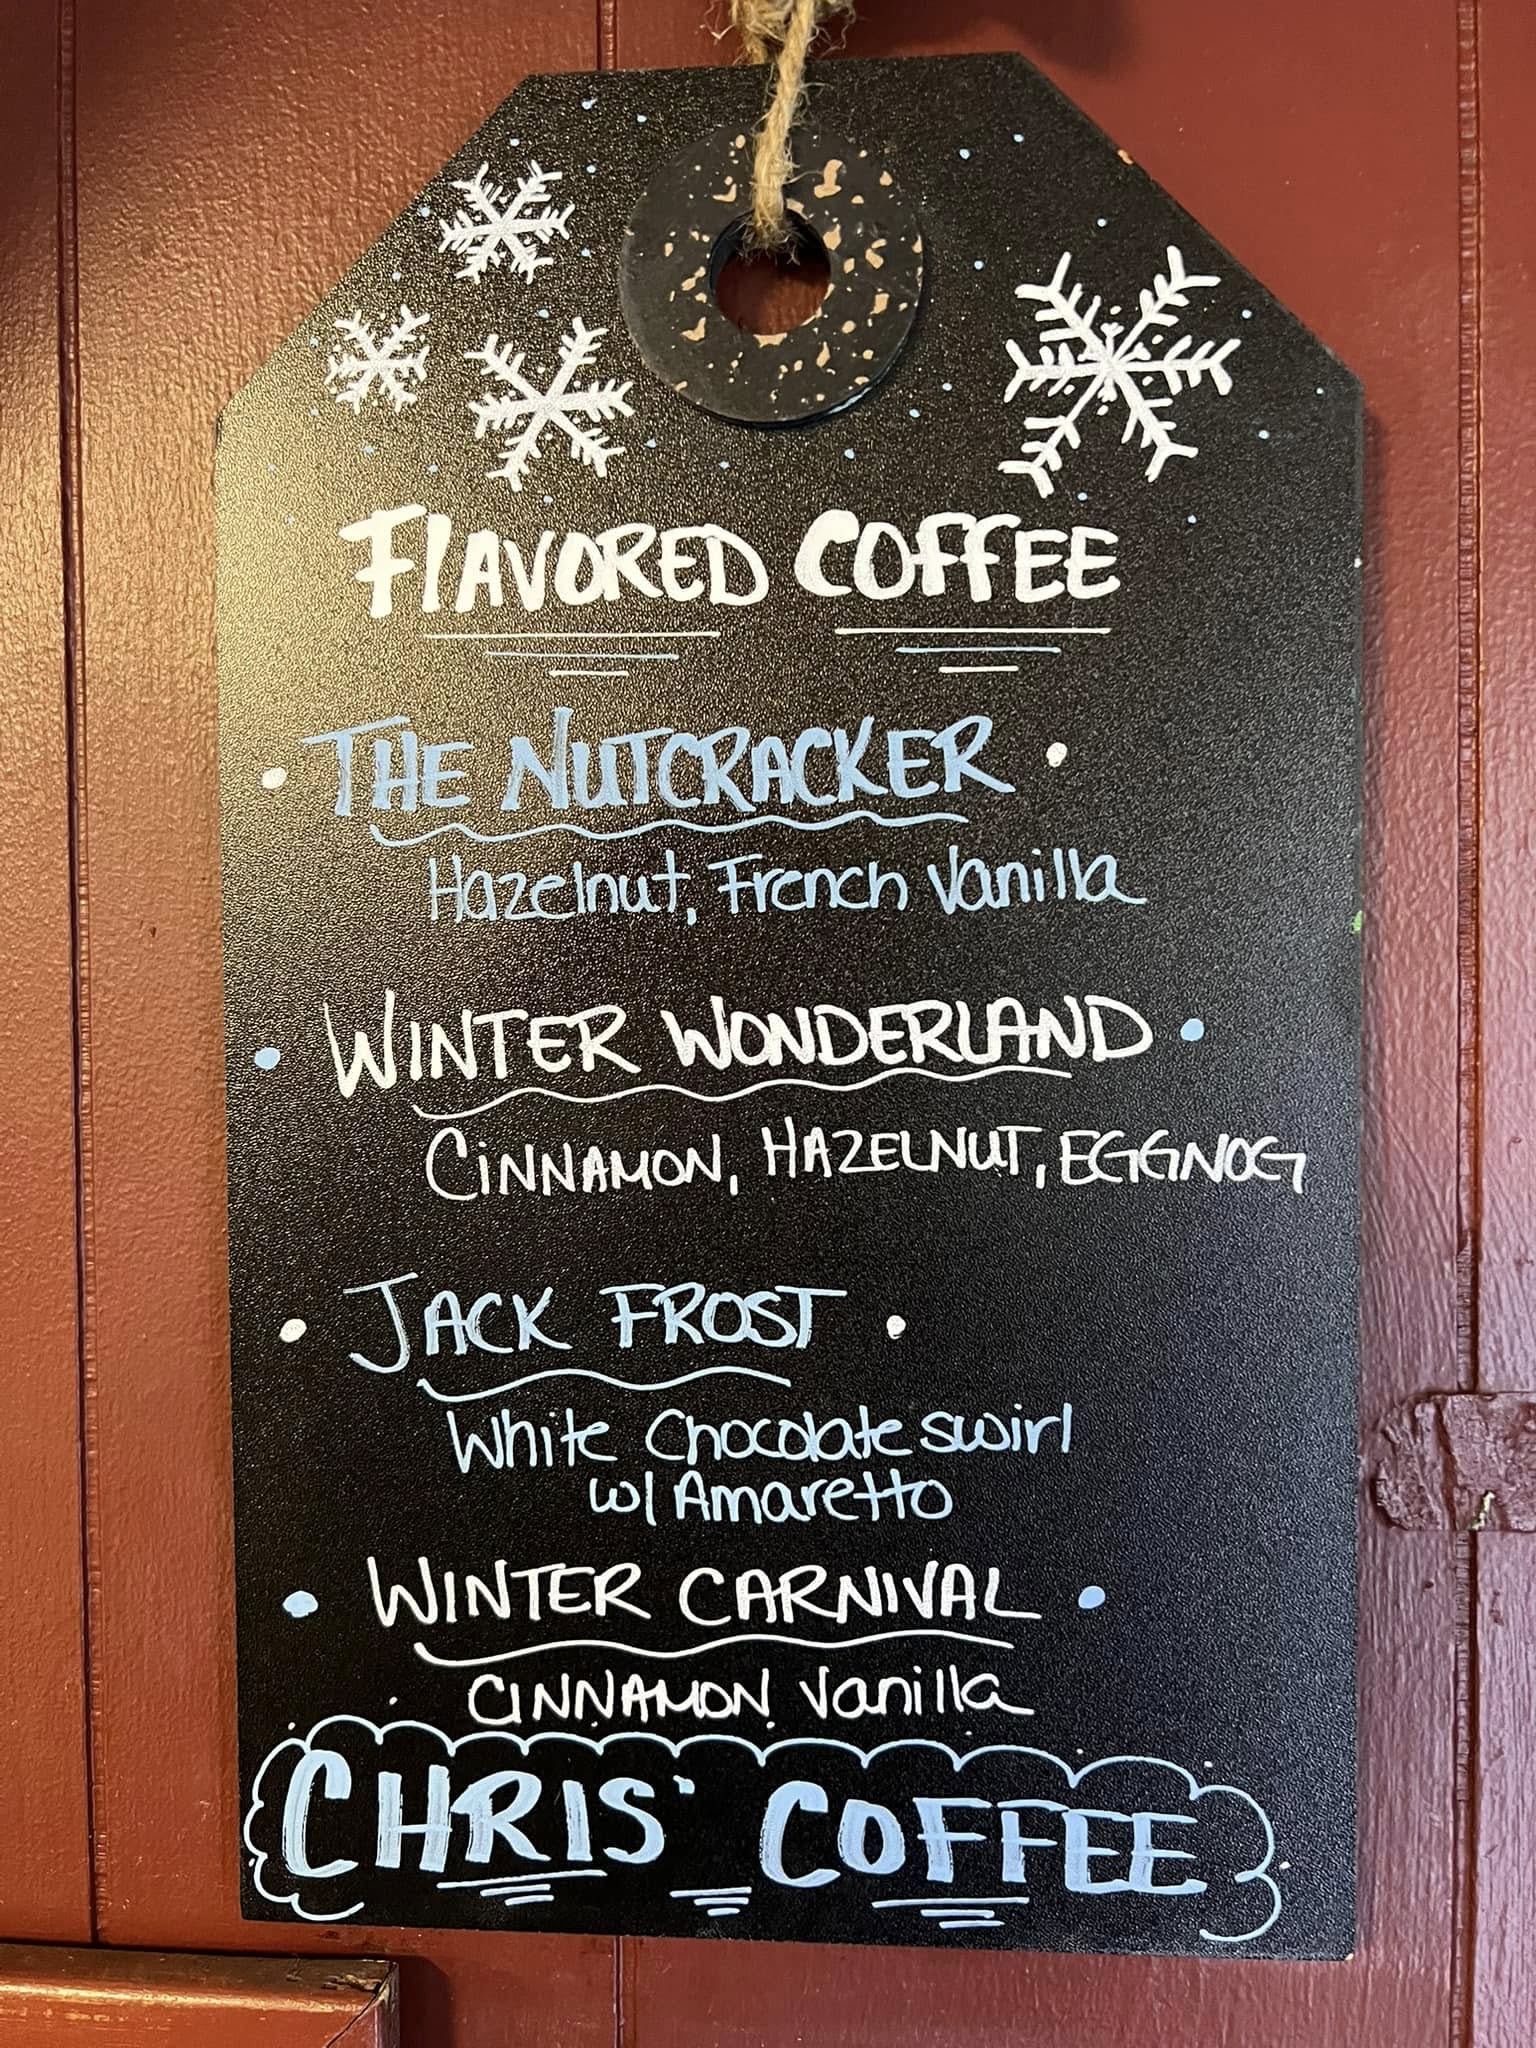 FlAVORED COFFEE
THE NUTCRACKER
Hazelnut, French Vanilla
WINTER WONDERLAND
CiNNAMON, HAZELNUT, EGGNOG
JACK FROST
White Chocolate swirl
w/ Amaretto
WINTER CARNIVAL
CINNAMON Vanilla
CHRIS' COFFEE